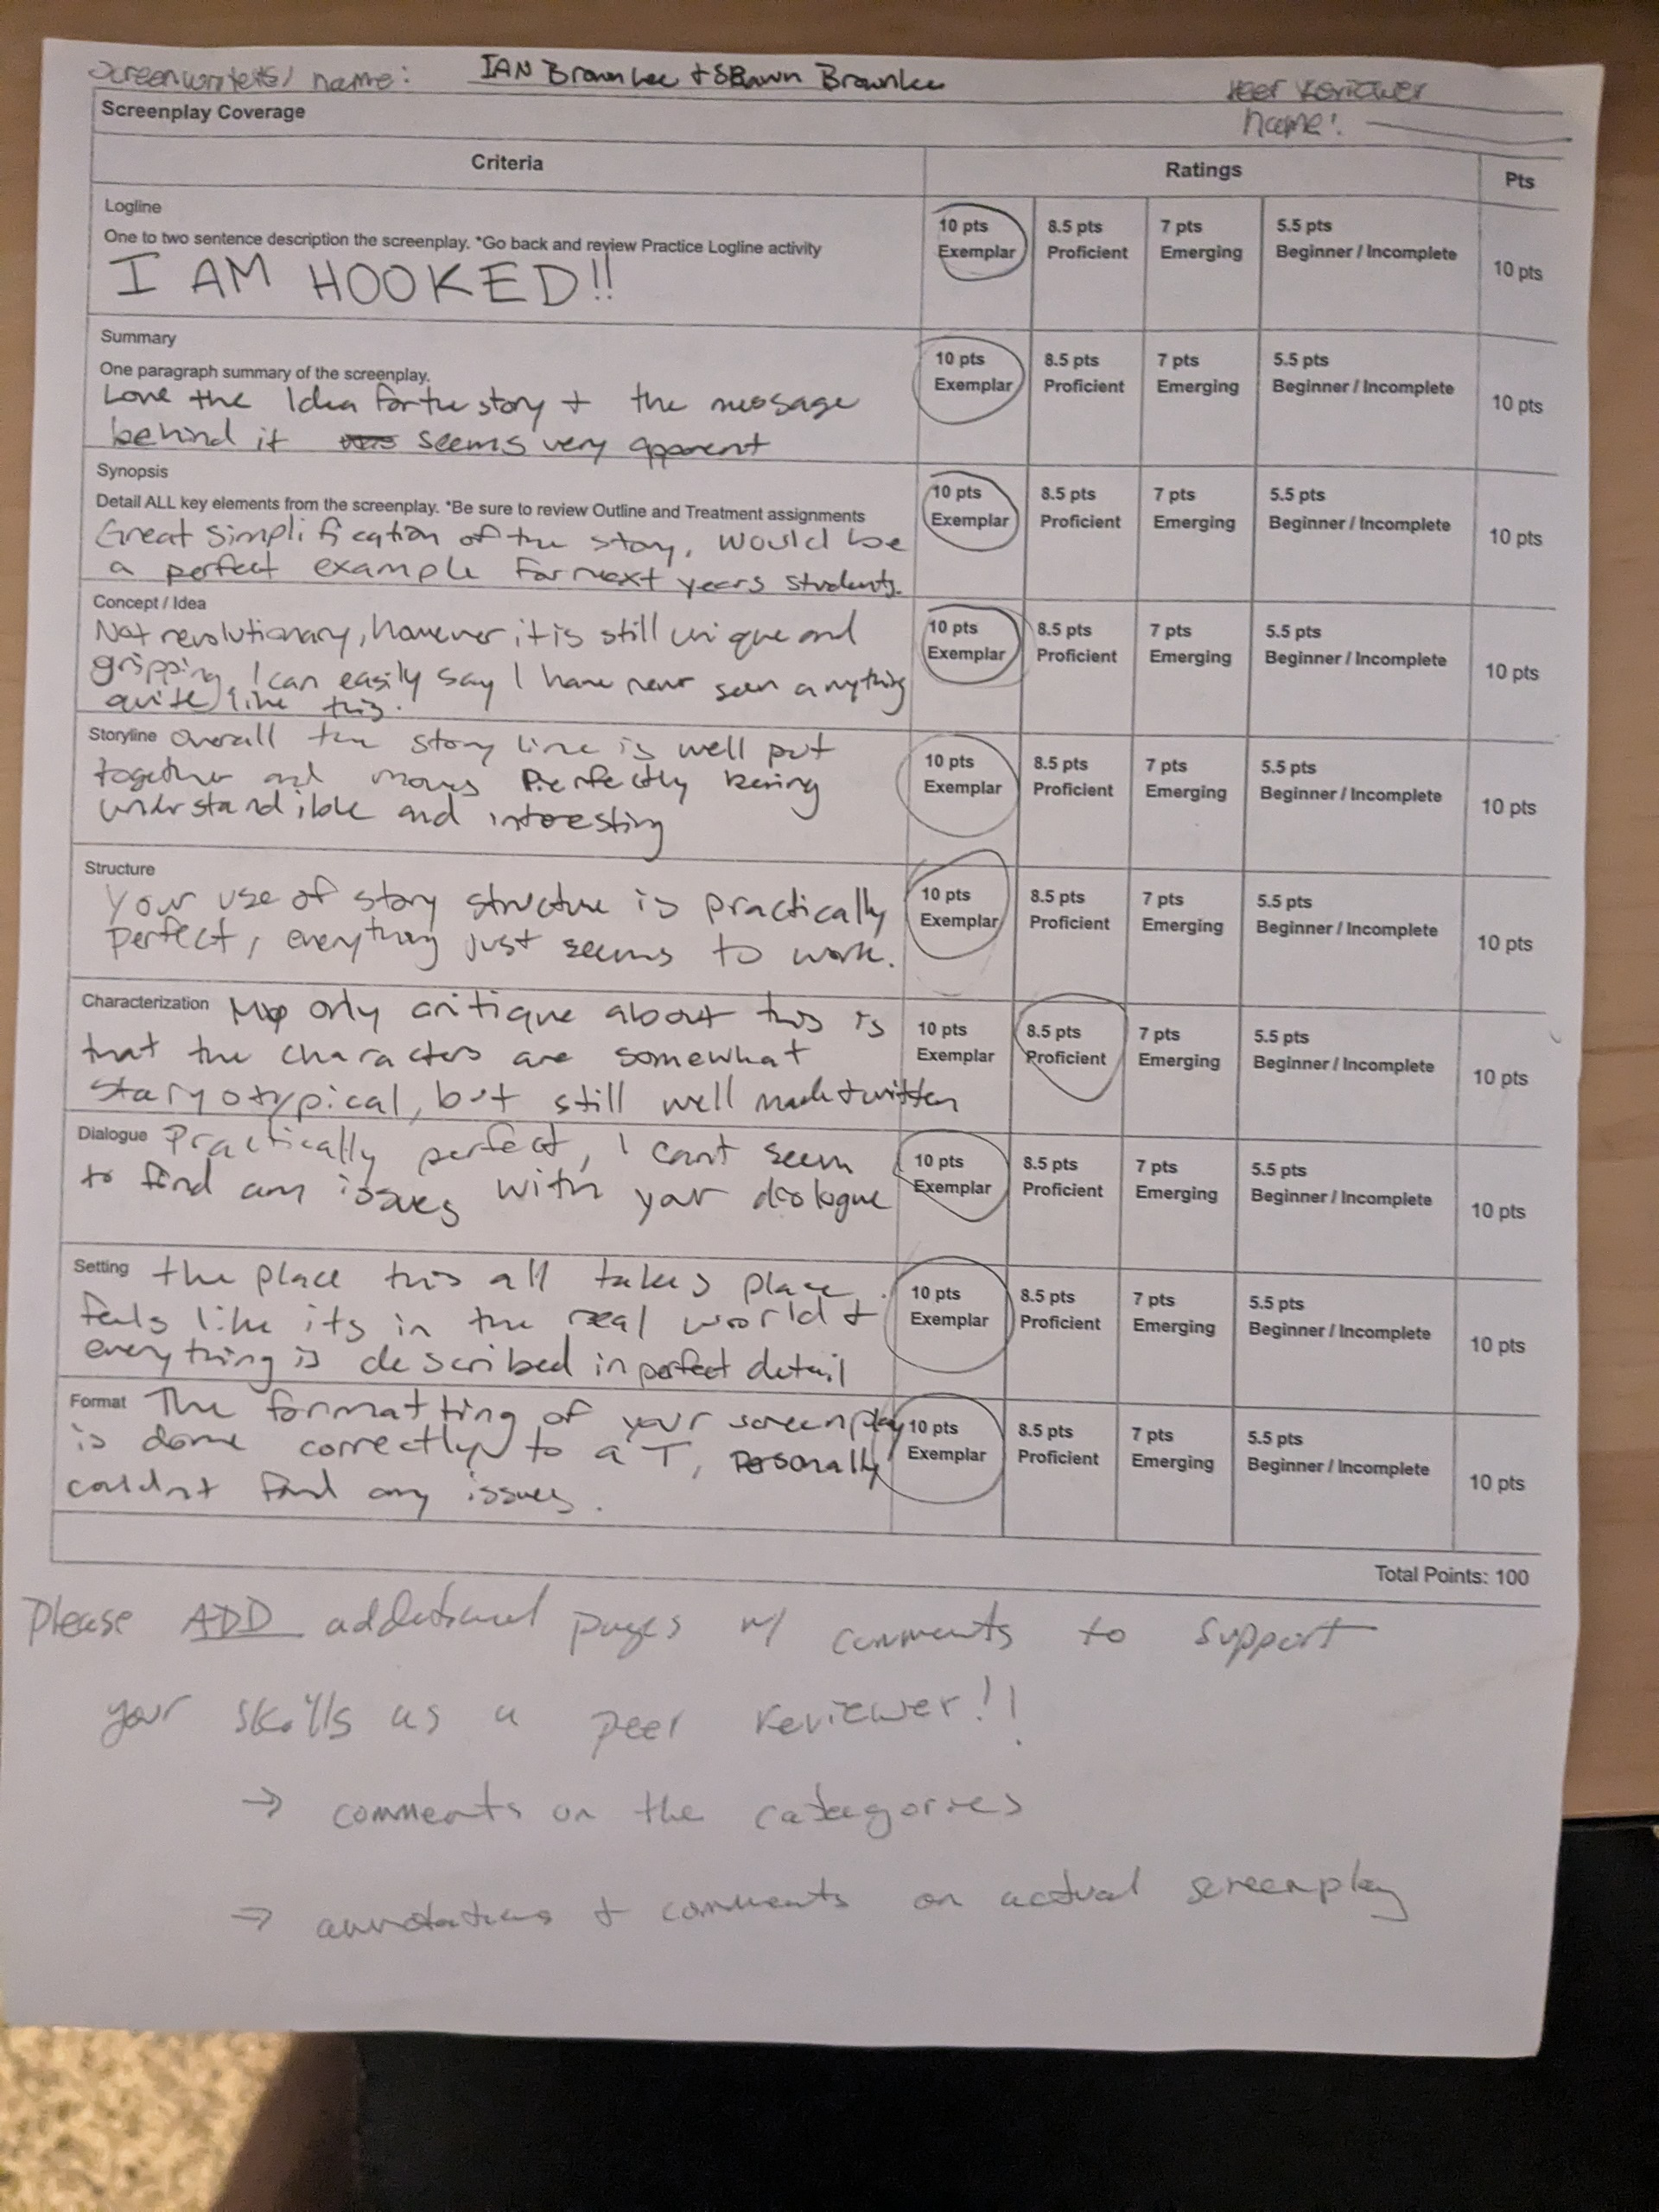 Screenwriter(s) name: IAN Brownlee + Shawn Brownlee
Peer Reviewer
name:
Screenplay Coverage
Criteria Ratings Pts
Logline
One to two sentence description the screenplay. *Go back and review Practice Logline activity
I AM HOOKED!!
10 pts 8.5 pts 7 pts 5.5 pts
Exemplar Proficient Emerging Beginner / Incomplete
10 pts
Summary
One paragraph summary of the screenplay.
Love the Idea for the story + the message
behind it seems very apparent
10 pts 8.5 pts 7 pts 5.5 pts
Exemplar Proficient Emerging Beginner / Incomplete
10 pts
Synopsis
Detail ALL key elements from the screenplay. *Be sure to review Outline and Treatment assignments
Great simplification of the story, would be
a perfect example for next years students.
10 pts 8.5 pts 7 pts 5.5 pts
Exemplar Proficient Emerging Beginner / Incomplete
10 pts
Concept / Idea
Not revolutionary, however it is still unique and
gripping, I can easily say I have never seen anything
quite like this.
10 pts 8.5 pts 7 pts 5.5 pts
Exemplar Proficient Emerging Beginner / Incomplete
10 pts
Storyline Overall the story line is well put
together and moves Perfectly being
understandible and interesting
10 pts 8.5 pts 7 pts 5.5 pts
Exemplar Proficient Emerging Beginner / Incomplete
10 pts
Structure
Your use of story structure is practically
perfect, everything just seems to work.
10 pts 8.5 pts 7 pts 5.5 pts
Exemplar Proficient Emerging Beginner / Incomplete
10 pts
Characterization My only critique about this is
that the characters are somewhat
staryotypical, but still well made + written
10 pts 8.5 pts 7 pts 5.5 pts
Exemplar Proficient Emerging Beginner / Incomplete
10 pts
Dialogue Practically perfect, I cant seem
to find any issues with your dialogue
10 pts 8.5 pts 7 pts 5.5 pts
Exemplar Proficient Emerging Beginner / Incomplete
10 pts
Setting the place this all takes place
feels like its in the real world +
everything is described in perfect detail
10 pts 8.5 pts 7 pts 5.5 pts
Exemplar Proficient Emerging Beginner / Incomplete
10 pts
Format The formatting of your screenplay
is done correctly to a T, Personally
couldnt find any issues.
10 pts 8.5 pts 7 pts 5.5 pts
Exemplar Proficient Emerging Beginner / Incomplete
10 pts
Total Points: 100
Please ADD additional pages w/ comments to support
your skills as a peer reviewer!!
→ comments on the categories
→ annotations + comments on actual screenplay